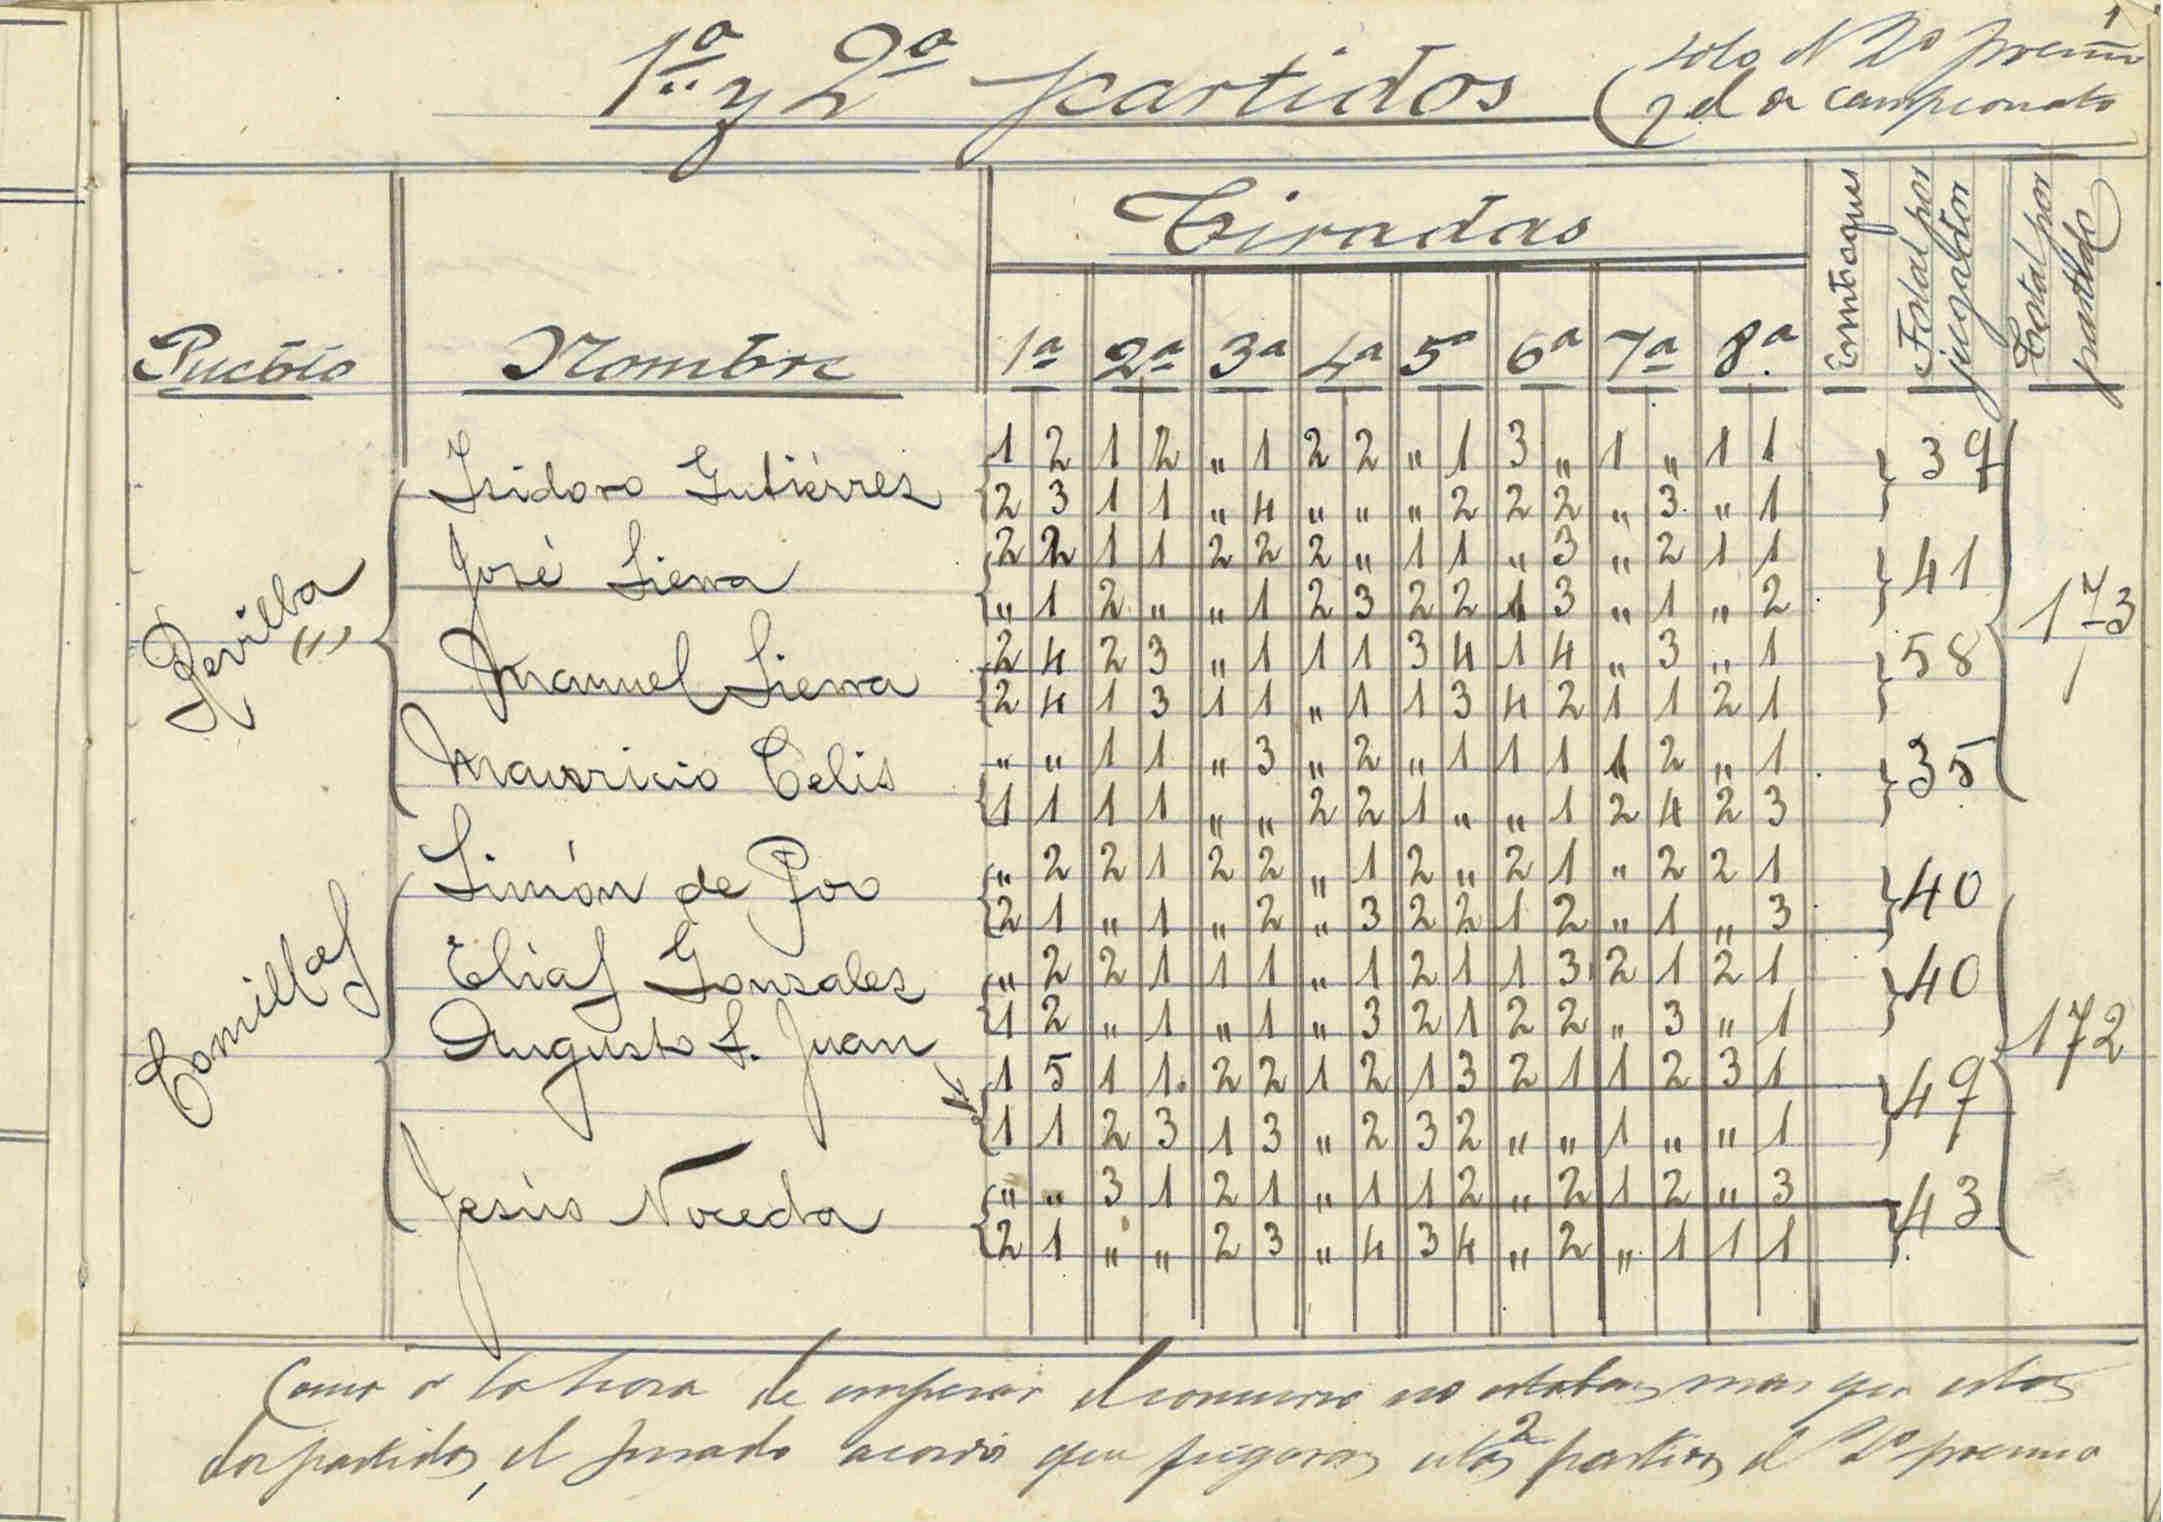 1
1ª y 2ª partidos (solo el 2º premio
y el de campeonato
Pueblo Nombre Tiradas emboques Total por jugador Total por partido
1ª 2ª 3ª 4ª 5ª 6ª 7ª 8ª
Revilla (1)
Isidoro Gutiérrez 1 2 1 2 " 1 2 2 " 1 3 " 1 " 1 1 39
2 3 1 1 " 4 " " " 2 2 2 " 3 " 1
José Sierra 2 2 1 1 2 2 2 " 1 1 " 3 " 2 1 1 41
" 1 2 " " 1 2 3 2 2 1 3 " 1 " 2
173
Manuel Sierra 2 4 2 3 " 1 1 1 3 4 1 4 " 3 " 1 58
2 4 1 3 1 1 " 1 1 3 4 2 1 1 2 1
Mauricio Celis " " 1 1 " 3 " 2 " 1 1 1 1 2 " 1 35
1 1 1 1 " " 2 2 1 " " 1 2 4 2 3
Comillas
Simón de Poo " 2 2 1 2 2 " 1 2 " 2 1 " 2 2 1 40
2 1 " 1 " 2 " 3 2 2 1 2 " 1 " 3
Elias Gonzalez " 2 2 1 1 1 " 1 2 1 1 3 2 1 2 1 40
1 2 " 1 " 1 " 3 2 1 2 2 " 3 " 1
172
Augusto S. Juan 1 5 1 1 2 2 1 2 1 3 2 1 1 2 3 1 49
1 1 2 3 1 3 " 2 3 2 " " 1 " " 1
Jesús Noceda " " 3 1 2 1 " 1 1 2 " 2 1 2 " 3 43
2 1 " " 2 3 " 4 3 4 " 2 " 1 1 1
Como a la hora de empezar el concurso no estaban mas que estos
dos partidos, el Jurado acordó que jugaran estos 2 partidos el 2º premio